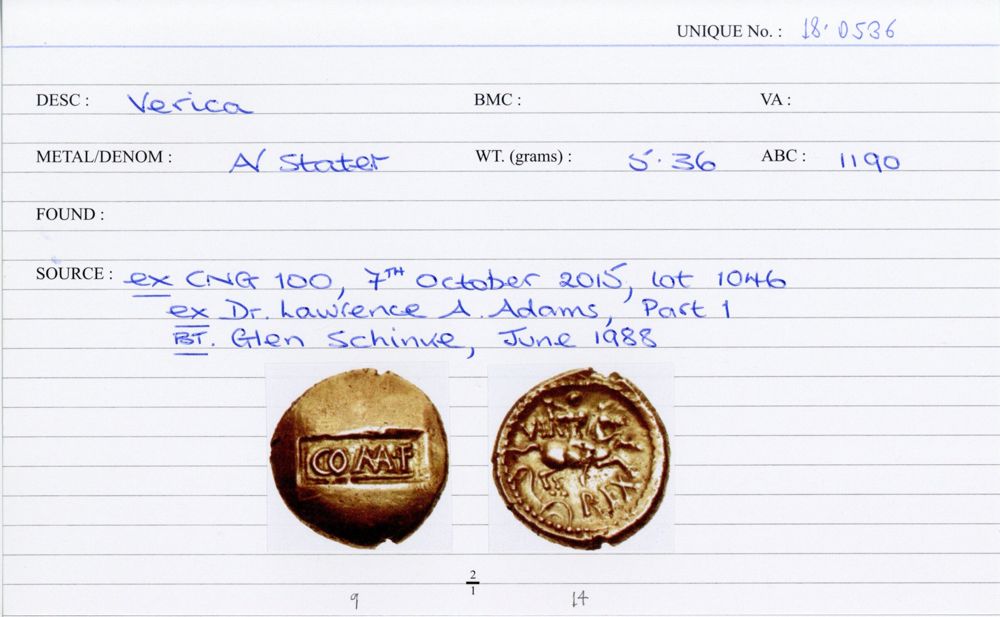 UNIQUE No. : 18.0536
DESC : Verica BMC : VA :
METAL/DENOM : AV Stater WT. (grams) : 5.36 ABC : 1190
FOUND :
SOURCE : ex CNG 100, 7TH October 2015, lot 1046
ex Dr. Lawrence A. Adams, Part 1
BT. Glen Schinke, June 1988
COM·F
REX
2
1
9 14